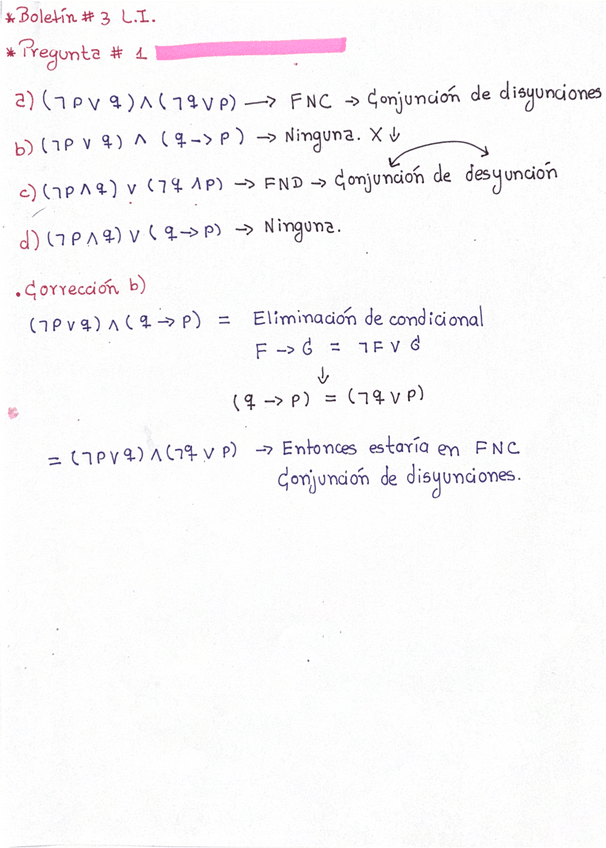 *Boletín # 3 L.I.
*Pregunta # 1
a) (¬p ∨ q) ∧ (¬q ∨ p) → FNC → Conjunción de disyunciones
b) (¬p ∨ q) ∧ (q → p) → Ninguna. X ↓
c) (¬p ∧ q) ∨ (¬q ∧ p) → FND → Conjunción de desyunción
d) (¬p ∧ q) ∨ (q → p) → Ninguna.
. Corrección b)
(¬p ∨ q) ∧ (q → p) = Eliminación de condicional
F → G = ¬F ∨ G
↓
(q → p) = (¬q ∨ p)
= (¬p ∨ q) ∧ (¬q ∨ p) → Entonces estaría en FNC
Conjunción de disyunciones.